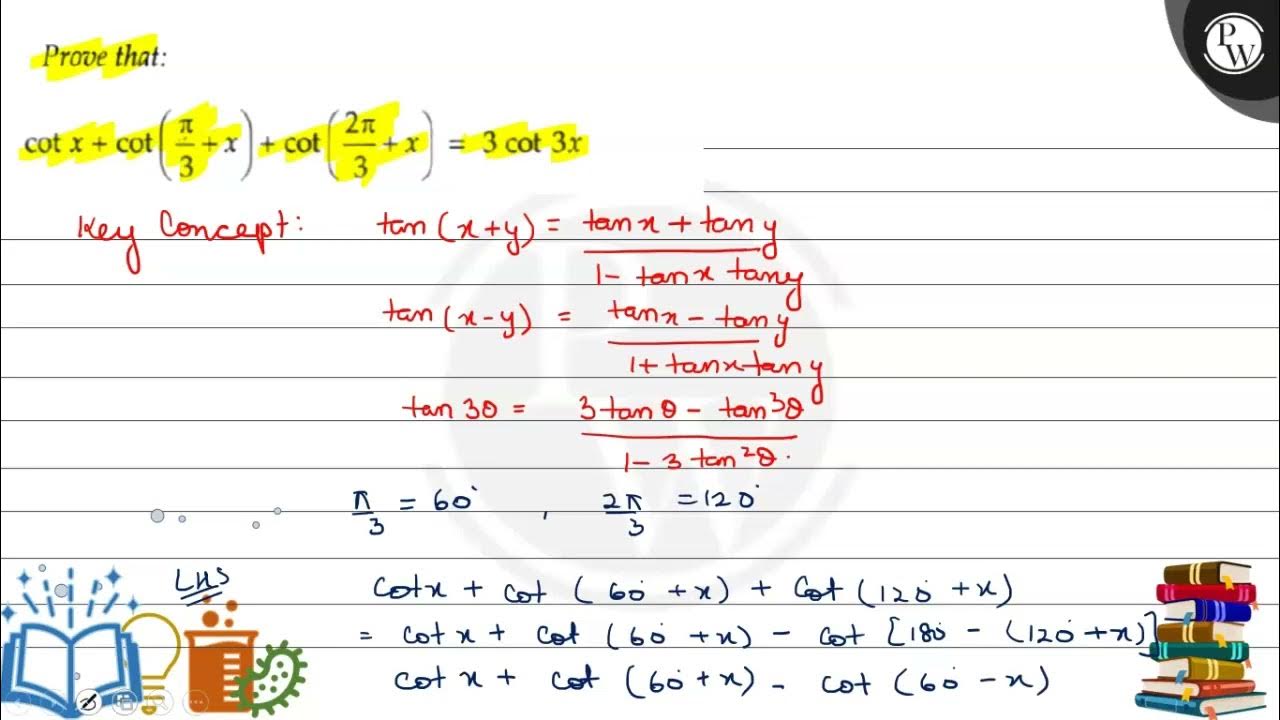 Prove that:
PW
cot x + cot(π/3 + x) + cot(2π/3 + x) = 3 cot 3x
Key Concept: tan (x+y) = tan x + tan y / 1 - tan x tan y
tan (x-y) = tan x - tan y / 1 + tan x tan y
tan 3θ = 3 tan θ - tan³θ / 1 - 3 tan²θ.
π/3 = 60°, 2π/3 = 120°
LHS cot x + cot (60° + x) + cot (120° + x)
= cot x + cot (60° + x) - cot [180° - (120° + x)]
cot x + cot (60° + x) - cot (60° - x)